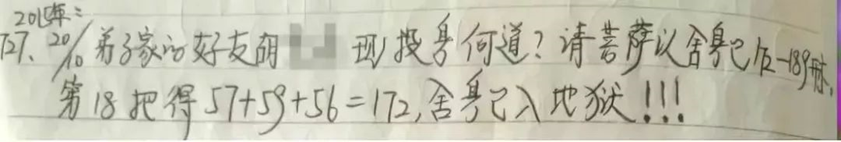 2015年:
127、20/10 弟子家的好友胡 现投身何道?请菩萨以舍身已172-189

第18把得57+59+56=172,舍身已入地狱!!!